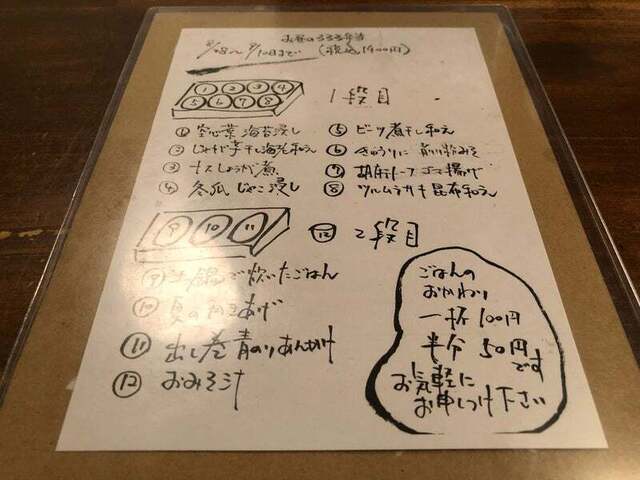 お昼のろろろ弁当
8/18〜9/10日まで (税込1900円)
① ② ③ ④
⑤ ⑥ ⑦ ⑧
1段目
① 空心菜 海苔浸し
② じゃが芋 干し海老和え
③ ナスしょうが煮
④ 冬瓜 じゃこ浸し
⑤ ビーツ煮干し和え
⑥ きゅうりに
⑦ 胡麻トーフ ゴマ揚げ
⑧ ツルムラサキ 昆布和え
⑨ ⑩ ⑪ ⑫
2段目
⑨ 土鍋で炊いたごはん
⑩ 夏のかきあげ
⑪ 出し巻 青のりあんかけ
⑫ おみそ汁
ごはんの
おかわり
一杯 100円
半分 50円
です
お気軽に
お申しつけ下さい